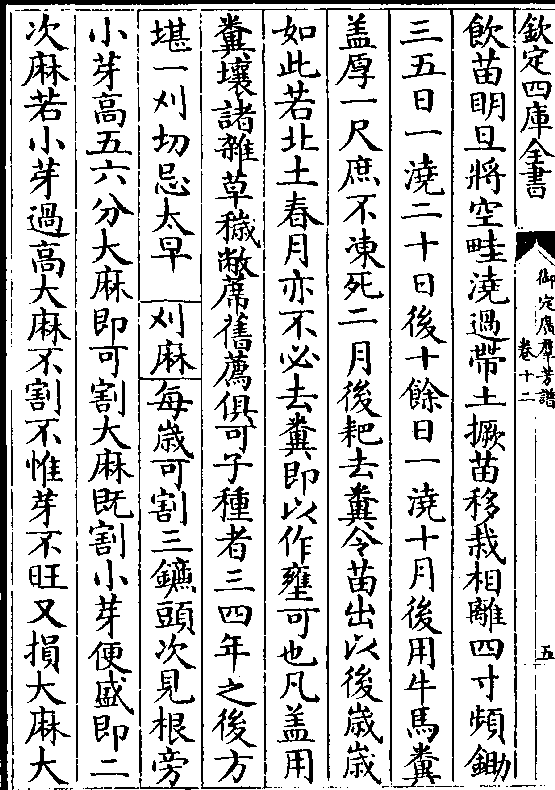 欽定四庫全書
御定廣羣芳譜
卷十二
五
飲苗明旦將空畦澆過帶土撅苗移栽相離四寸頻鋤
三五日一澆二十日後十餘日一澆十月後用牛馬糞
盖厚一尺庶不凍死二月後耙去糞令苗出以後歳歳
如此若北土春月亦不必去糞即以作壅可也凡盖用
糞壤諸雜草穢敝蓆舊薦俱可子種者三四年之後方
堪一刈切忌太早　刈麻　每歳可割三鐮頭次見根旁
小芽高五六分大麻即可割大麻既割小芽便盛即二
次麻若小芽過高大麻不割不惟芽不旺又損大麻大